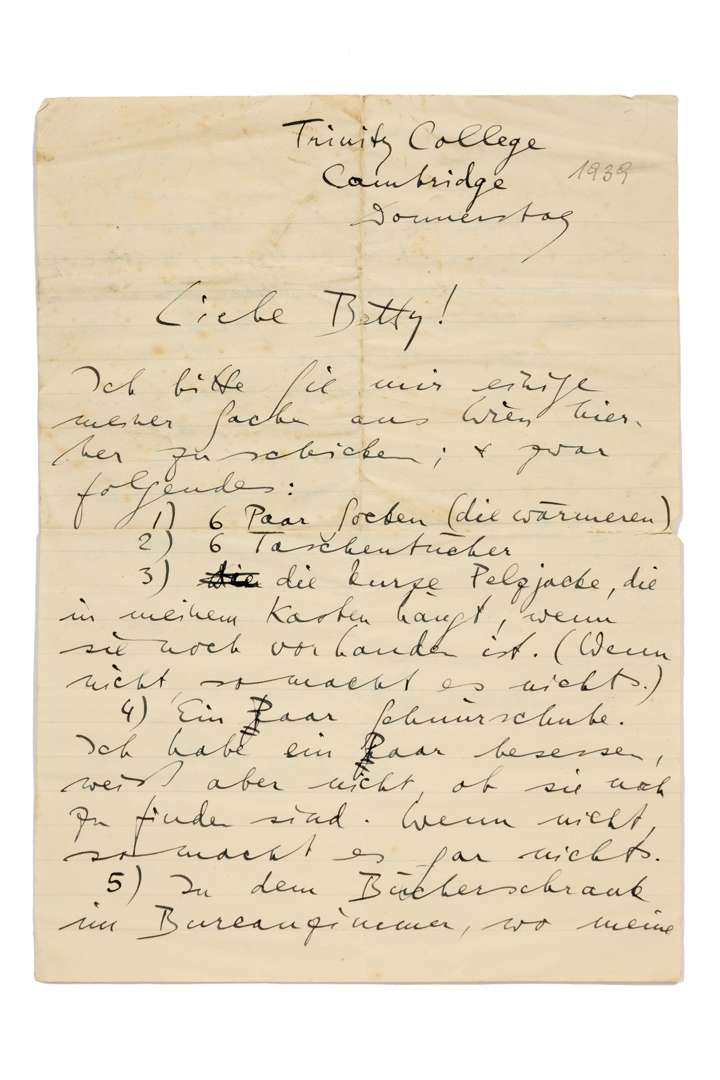 Trinity College
Cambridge 1939
Donnerstag
Liebe Betty!
Ich bitte Sie mir einige
meiner Sachen aus Wien hier-
her zu schicken; & zwar
folgendes:
1) 6 Paar Socken (die wärmeren)
2) 6 Taschentücher
3) die die kurze Pelzjacke, die
in meinem Kasten hängt, wenn
sie noch vorhanden ist. (Wenn
nicht, so macht es nichts.)
4) Ein Paar Schnürschuhe.
Ich habe ein Paar besessen,
weiß aber nicht, ob sie noch
zu finden sind. Wenn nicht,
so macht es gar nichts.
5) In dem Bücherschrank
im Bureauzimmer, wo meine